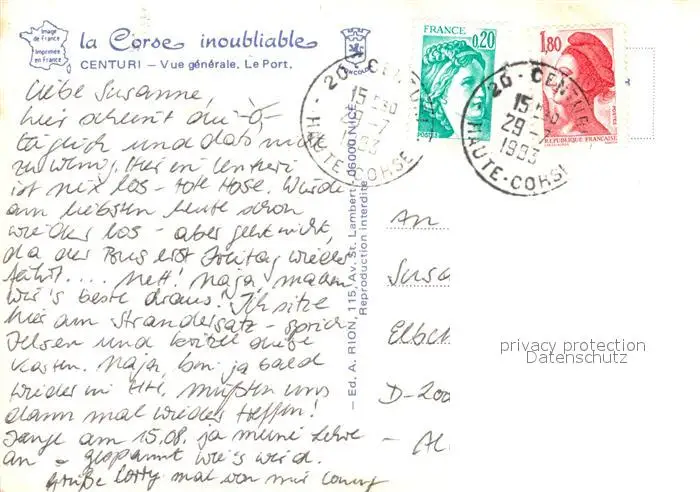 Image de France
Imprimée en France
la Corse inoubliable
CENTURI – Vue générale. Le Port.
Liebe Susanne,
hier scheint die
täglich und das nicht
zu wenig. Hier in Centuri
ist nix los – tote Hose. Würde
am liebsten heute schon
wieder los – aber geht nicht,
da der Bus erst Freitag wieder
fährt.... Nett! Naja, machen
wir's beste draus! Ich sitze
hier am Strandersatz – sprich
Felsen und kritzel diese
Karten. Naja, bin ja bald
wieder in HH, müßten uns
dann mal wieder treffen!
Fange am 15.08. ja meine Lehre
an – gespannt wie's wird.
Grüße
mal von mir
– Ed. A. RION, 115, Av. St. Lambert - 06000 NICE
Reproduction interdite
FRANCE
0,20
POSTES
1,80
REPUBLIQUE FRANÇAISE
POSTES
20 - CENTURI
15 H30
-7
1993
HAUTE-CORSE
20 - CENTURI
15 H30
29 -7
1993
HAUTE-CORSE
An
Susa
Elbch
D-200
privacy protection
Datenschutz